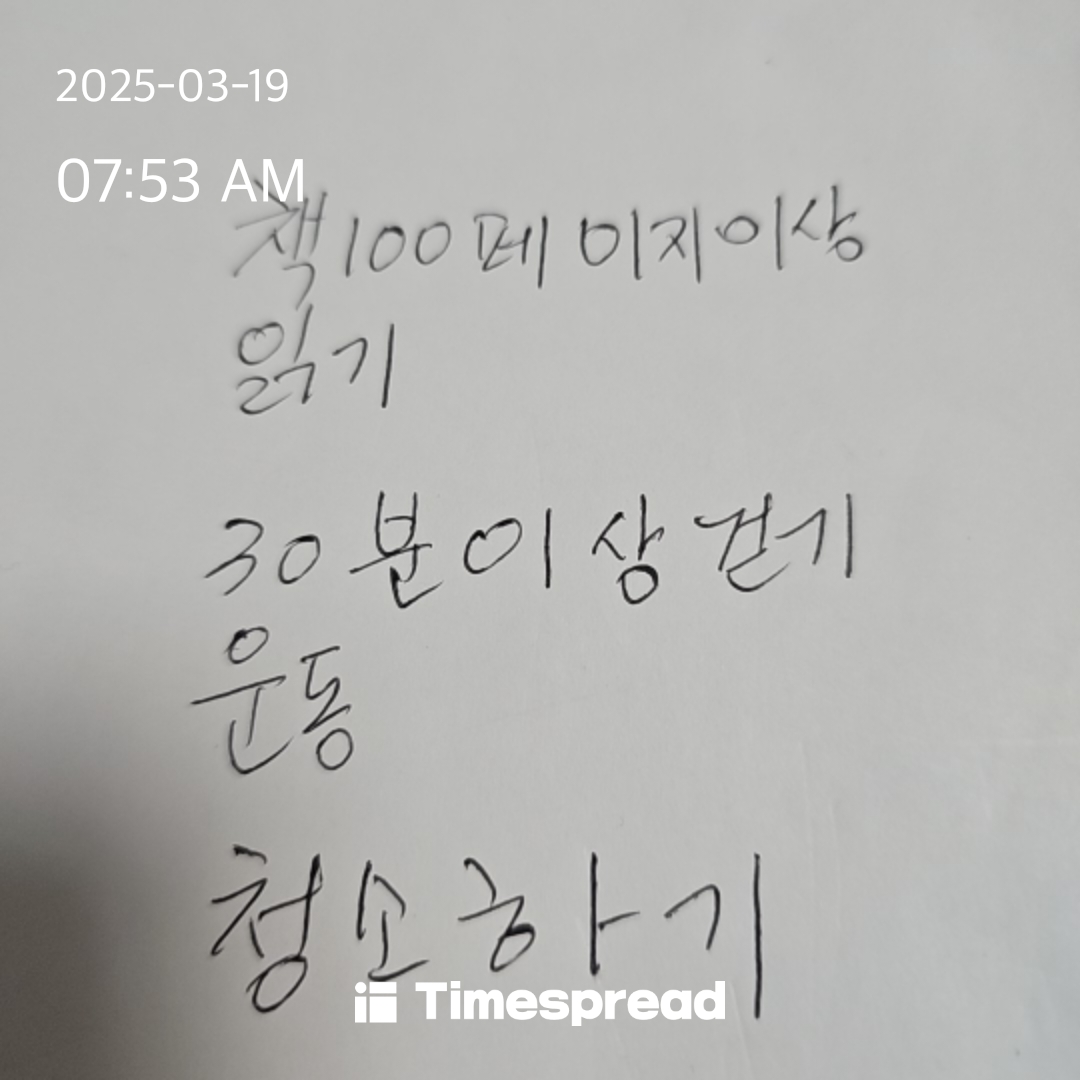 2025-03-19
07:53 AM
책 100 페이지 이상
읽기
30분 이상 걷기
운동
청소하기
Timespread